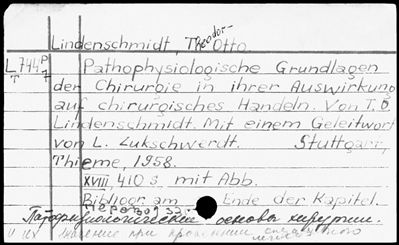 Lindenschmidt, Theodor-Otto
L744 P Pathophysiologische Grundlagen
T 7 der Chirurgie in ihrer Auswirkung
auf chirurgisches Handeln. Von T.O.
Lindenschmidt. Mit einem Geleitwort
von L. Zukschwerdt. Stuttgart,
Thieme, 1958.
XVIII, 410 s. mit Abb.
Bibliogr. am Ende der Kapitel.
Патофизиологические основы хирургии.
и их значение при